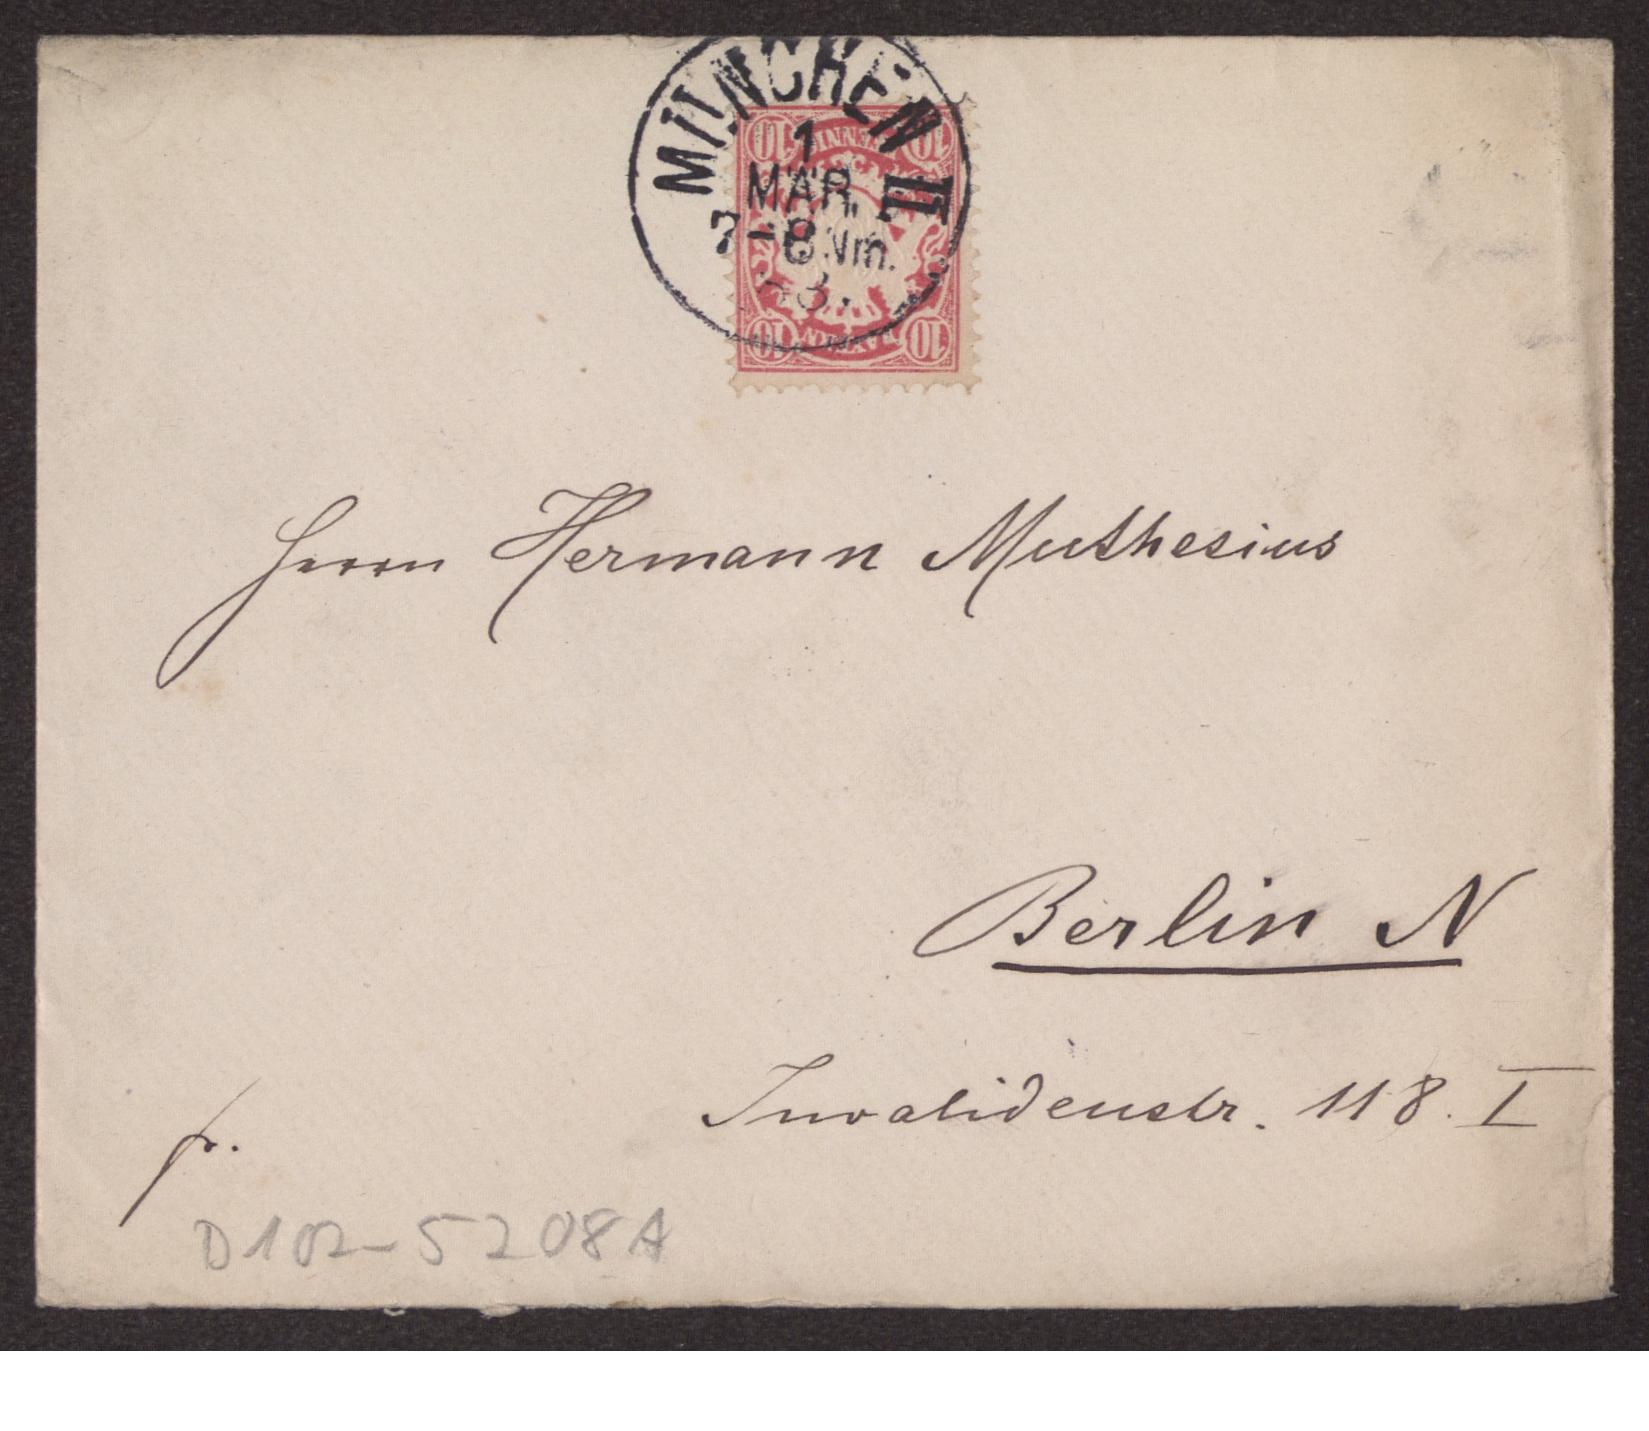 MÜNCHEN II
1
MÄR.
7-8 Nm.
10 10
10 10
BAYERN
Herrn Hermann Muthesius
Berlin N
Invalidenstr. 118. I
fr.
D102-5208A